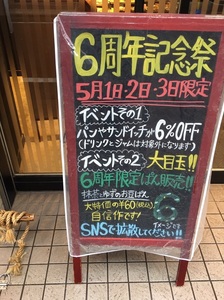 6周年記念祭
5月1日・2日・3日限定
イベントその1
パンやサンドイッチが6%OFF
(ドリンクとジャムは対象外になります)
イベントその2 大目玉!!
6周年限定ぱん販売!!
ゆずのお豆ぱん
大特価の¥60(税込)
自信作です!
6
イメージです
SNSで拡散してください!!